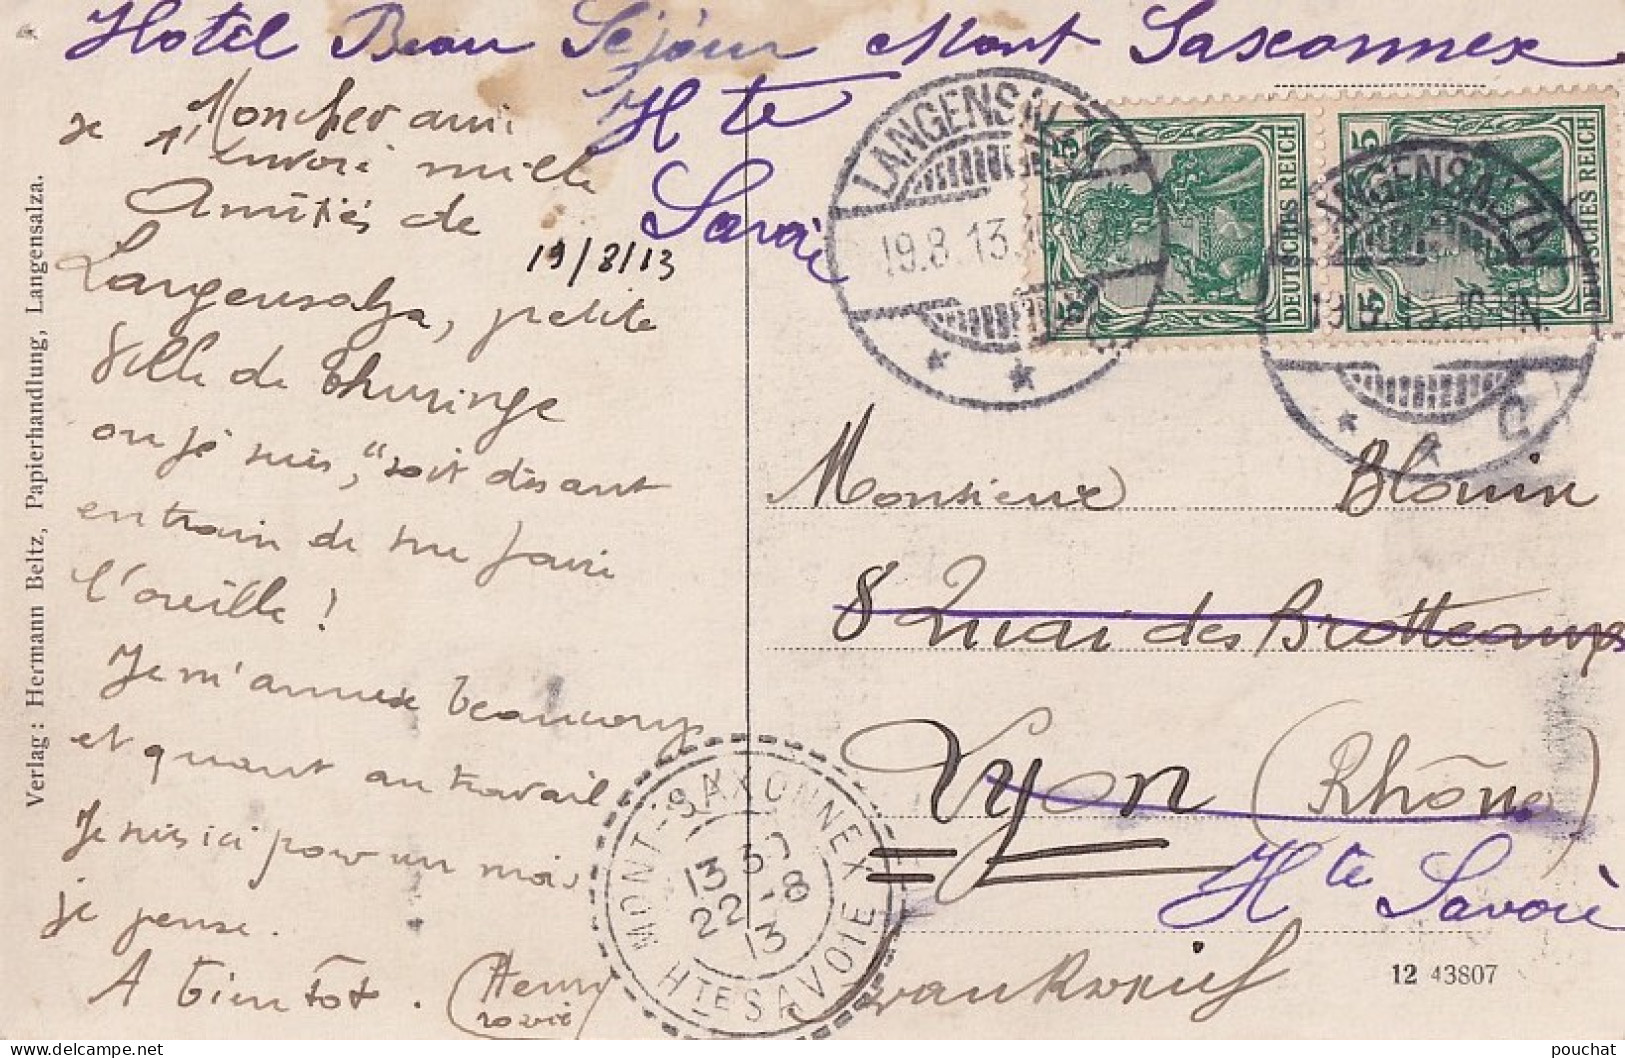 Hotel Beau Séjour Mont Saxonnex
Hte
Savoie
Mon cher ami
Je t'envoie mille
Amitiés de
19/8/13
Langensalza, petite
Ville de Thuringe
ou je suis, "soit disant
en train de me faire
l'oreille!
Je m'annuie beaucoup
et quant au travail
Je suis ici pour un mois
je pense.
A bientôt. (Henry
Verlag: Hermann Beltz, Papierhandlung, Langensalza.
LANGENSALZA
19.8.13
DEUTSCHES REICH
5
5
LANGENSALZA
DEUTSCHES REICH
5
5
Monsieur Blouin
8 Quai des Brotteaux
Lyon (Rhône)
Hte Savoie
Frankreich
MONT-SAXONNEX
13 30
22-8
13
HTE SAVOIE
12 43807
pouchat